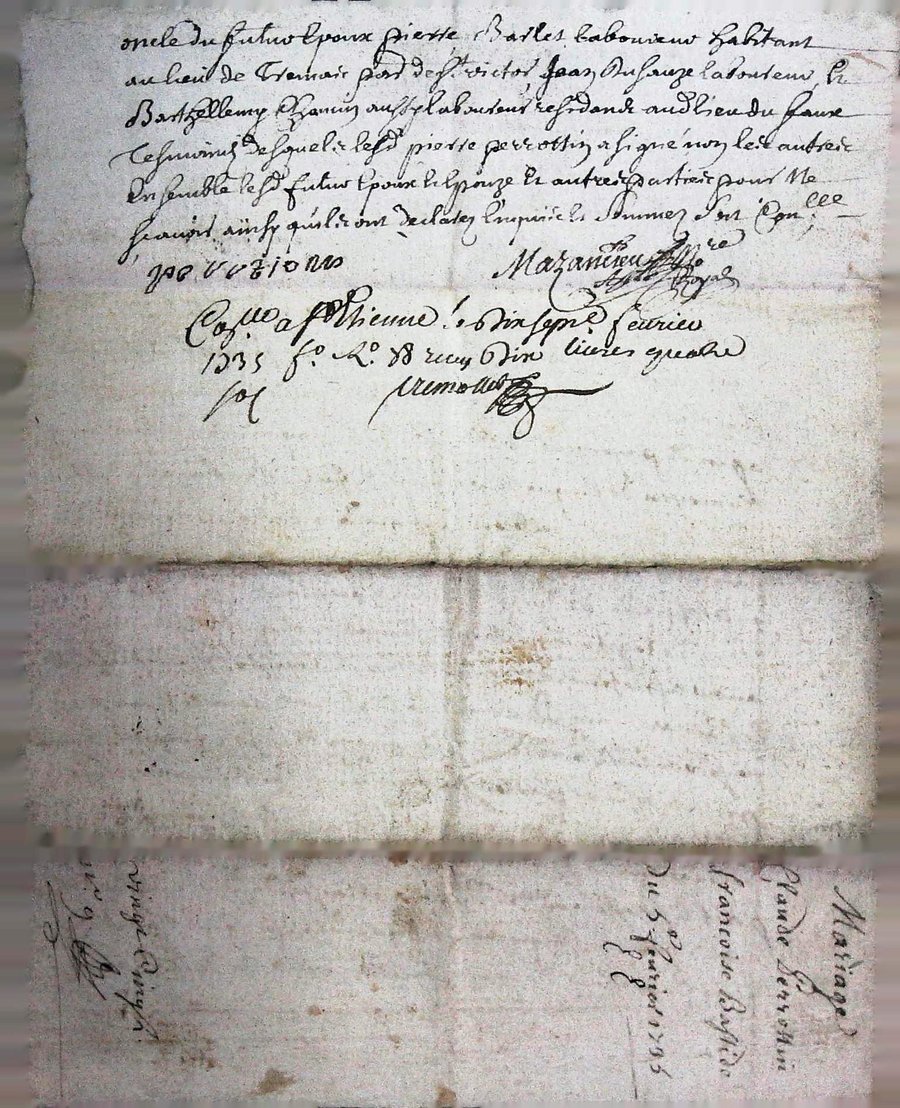 oncle du futur Epoux pierre Barlet laboureur habitant
au lieu de Tremaic par de St victor Jean Duhauze laboureur Et
Barthellemy Chanin aussy laboureur residant aud lieu du faure
Tesmoins desquels led pierre perrottin a signé non les autres
Ensemble led futur Epoux Et Epouze Et autres parties pour Ne
sçavoir ainsy quils ont declaré Enquis Et Sommez Soit Conlle
perrotton
Mazancieu Nore Royal
Conlle a St Etienne le dix sept fevrier
1735 fo Ro 88 reçu dix livres quatre
sol
Mariage
Claude Perrottin
françoise Bastide
Du 5e fevrier 1735